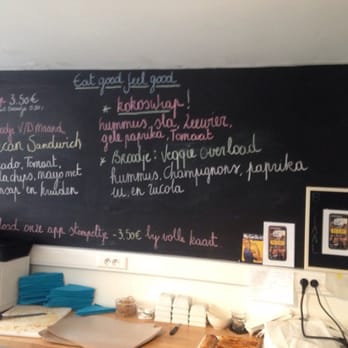 Eat good feel good
3.50€
* kokoswrap!
hummus, sla, zeewier,
gele paprika, Tomaat
* Broodje: Veggie overload
hummus, Champignons, paprika
ui, en rucola
V/D Maand
can Sandwich
ado, Tomaat,
chips, mayo met
sap en kruiden
load onze app stempeltje -3.50€ bij volle kaart